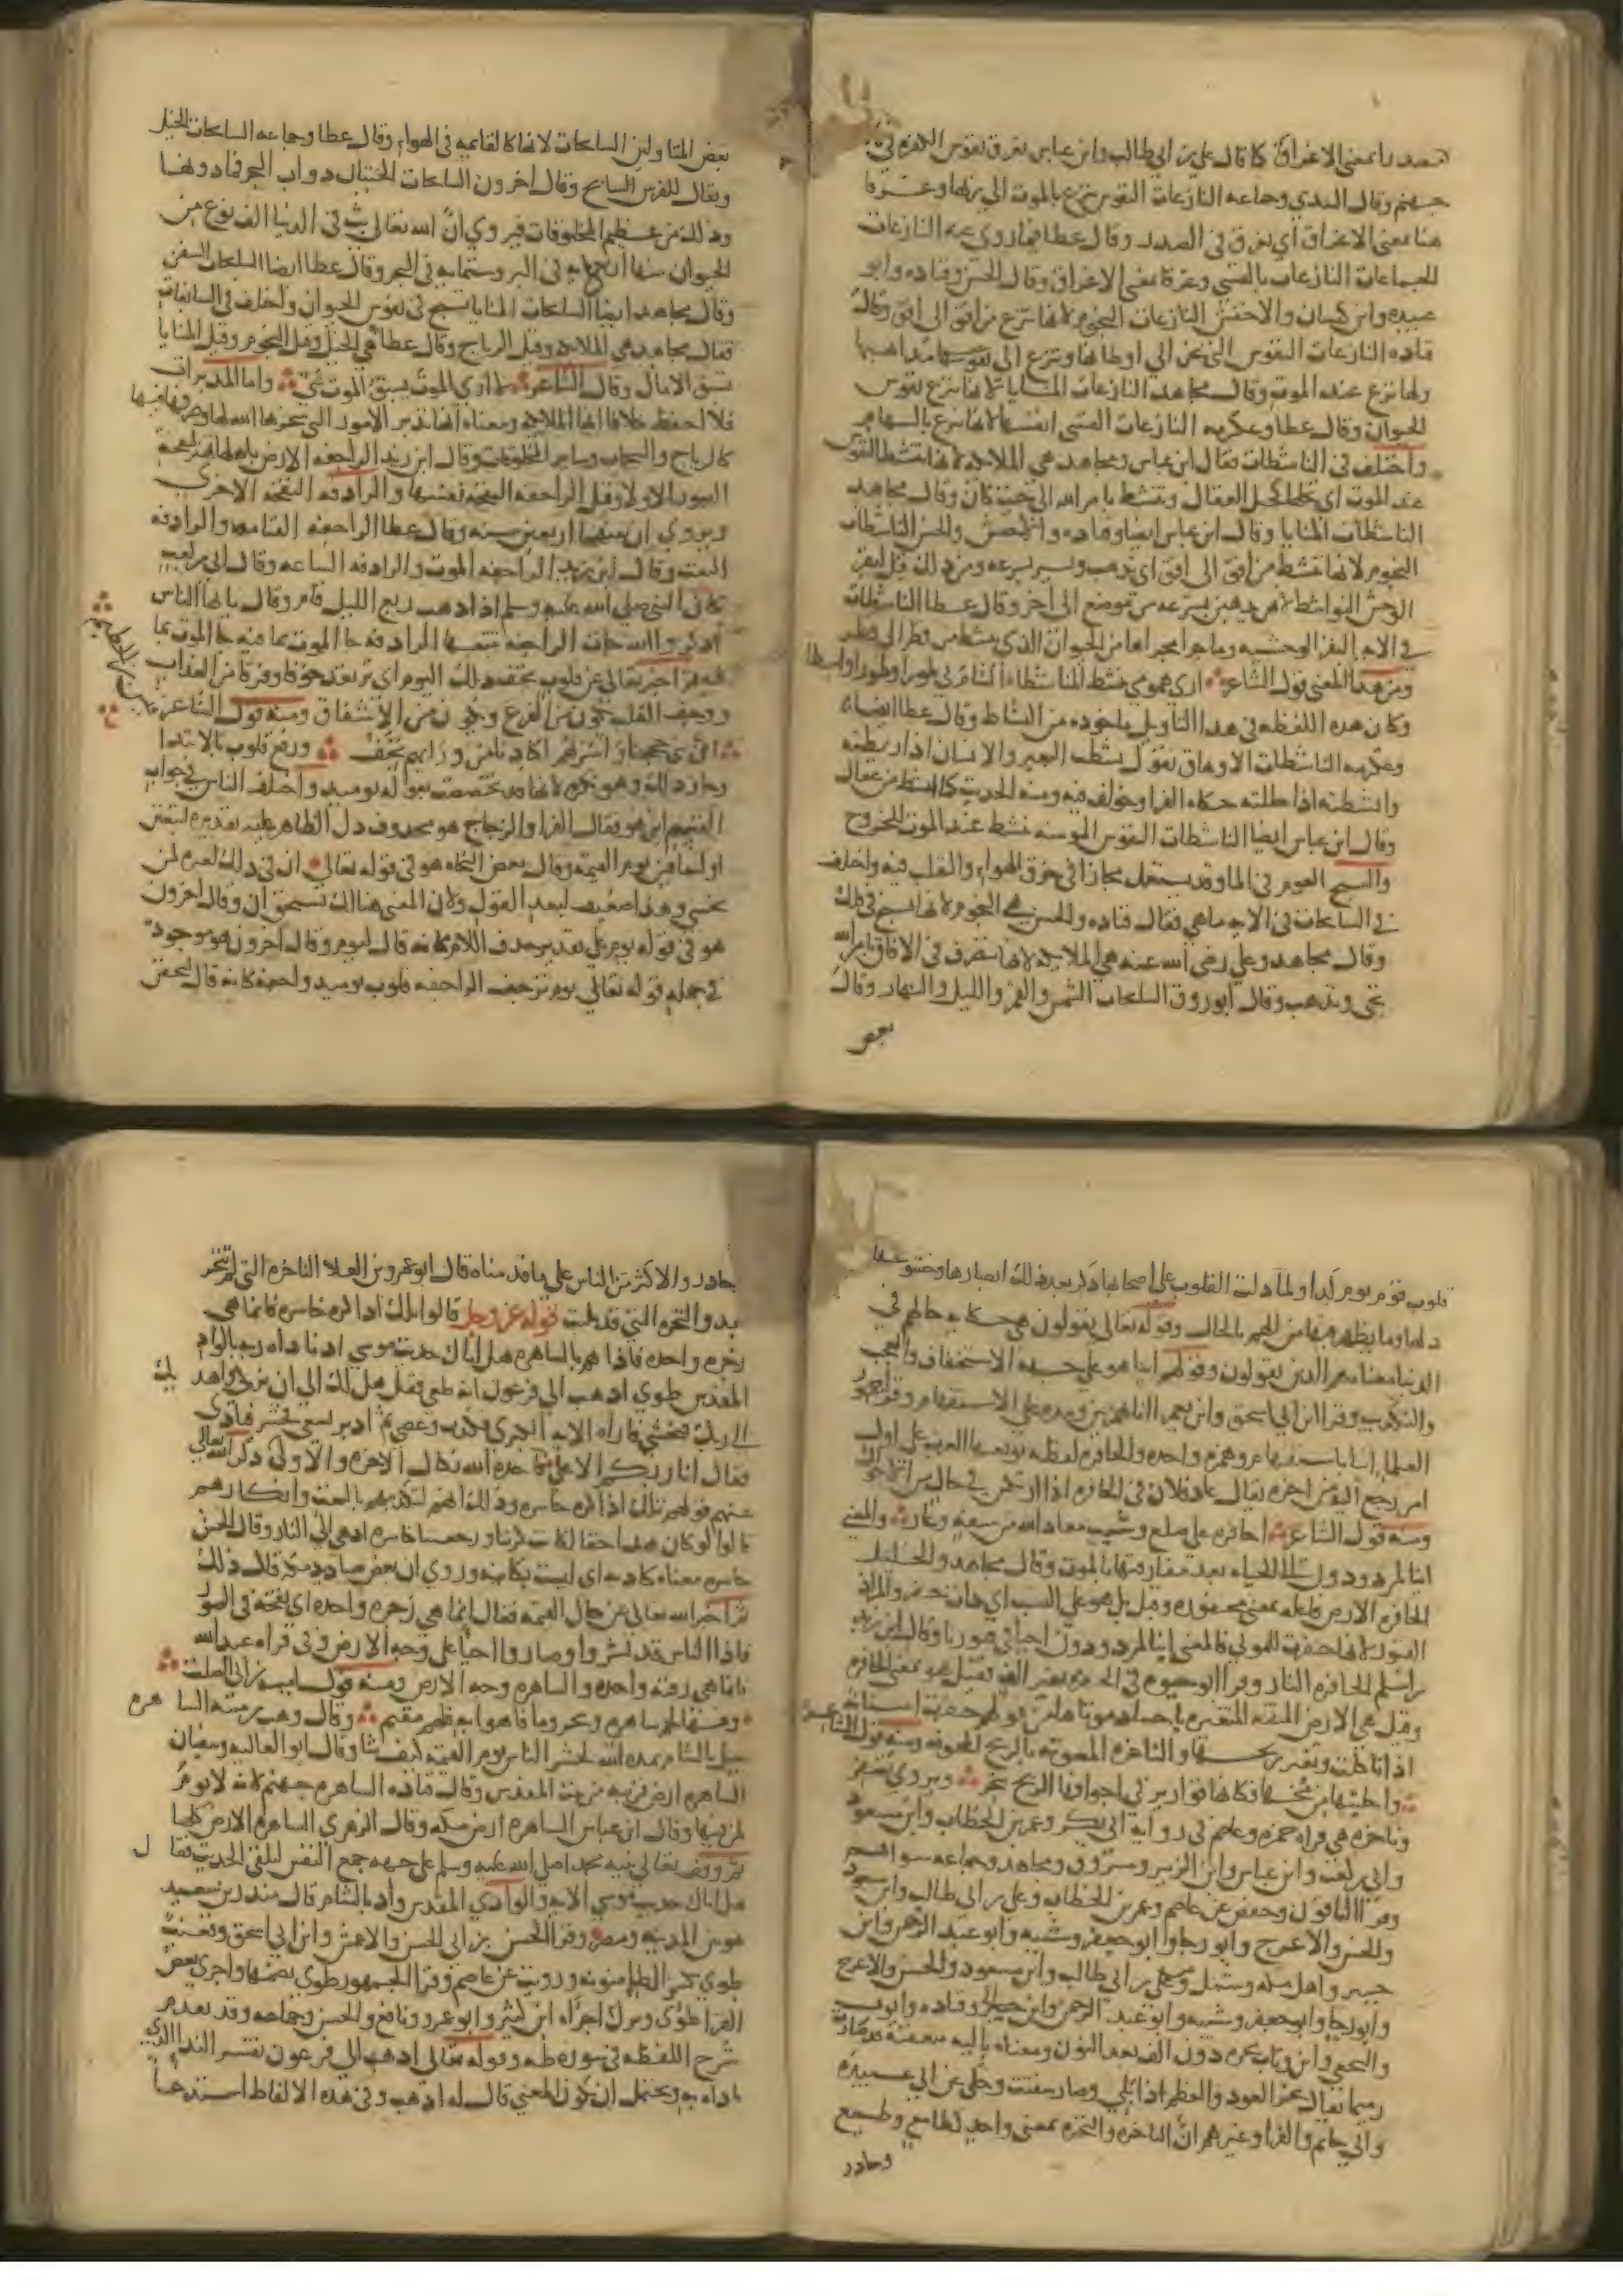 مصدرا بمعنى الاغراق كما قال علي بن ابي طالب وابن عباس تغرق نفوس الكفره في
جهنم وقال السدي وجماعه النازعات النفوس تنزع بالموت الي ربها وغرقا
هنا بمعنى الاغراق اي تغرق في الصدر وقال عطا فيما روي عنه النازعات
الجماعات النازعات بالقسي وغرقا بمعنى الاغراق وقال الحسن وقتاده وابو
عبيده وابن كيسان والاخفش النازعات النجوم لانها تنزع من افق الى افق وقال
قتاده النازعات النفوس التي تحن الي اوطانها وتنزع الى
ولها نزع عند الموت وقال مجاهد النازعات المنايا لانها تنزع نفوس
الحيوان وقال عطا وعكرمه النازعات القسي انفسها لانها تنزع بالسهام
واختلف في الناشطات فقال ابن عباس ومجاهد هي الملايكه لانها تنشط النفوس
عند الموت اي تحلها كحل العقال وتنشط بامر الله الى حيث كان وقال مجاهد
الناشطات المنايا وقال ابن عباس ايضا وقتاده والاخفش والحسن الناشطات
النجوم لانها تنشط من افق الى افق اي تذهب وتسير بسرعه ومن ذلك قيل لبقر
الوحش النواشط لانهن يذهبن بسرعه من موضع الى اخر وقال عطا الناشطات
في الايه البقر الوحشيه وما جرا مجراها من الحيوان الذي ينشط من قطر الى قطر
ومن هذا المعنى قول الشاعر ارى همومي تنشط المناشطا الشام بي طورا وطورا واسطا
وكان هذه اللفظه في هذا التاويل ماخوذه من النشاط وقال عطا ايضا
وعكرمه الناشطات الاوهاق يقول نشطت البعير والانسان اذا ربطته
وانشطته اذا حللته حكاه الفرا وخولف فيه ومنه الحديث كانما انشط من عقال
وقال ابن عباس ايضا الناشطات النفوس المومنه تنشط عند الموت للخروج
والسبح العوم في الما وقد يستعمل مجازا في خرق الهواء والتقلب فيه واختلف
في السابحات في الايه ما هي فقال قتاده والحسن هي النجوم لانها تسبح في فلك
وقال مجاهد وعلي رضي الله عنه هي الملايكه لانها تتصرف في الافاق بامر الله
تجي وتذهب وقال ابو روق السابحات الشمس والقمر والليل والنهار وقال
بعض
بعض المتاولين السابحات لانها كالقايمه في الهواء وقال عطا وجماعه السابحات الخيل
ويقال للفرس السابح وقال اخرون السابحات الحيتان دواب البحر فما دونها
وذلك من عظيم المخلوقات فيروي ان الله تعالى بث في الدنيا الف نوع من
الحيوان منها اربعمايه في البر وستمايه في البحر وقال عطا ايضا السابحات السفن
وقال مجاهد ايضا السابحات المنايا تسبح في نفوس الحيوان واختلف في السابقات
فقال مجاهد هي الملايكه وقيل الرياح وقال عطا هي الخيل وقيل النجوم وقيل المنايا
تسبق الامال وقال الشاعر لا ارى الموت يسبق الموت شي واما المدبرات
فلا احفظ خلافا انها الملايكه ومعناه انها تدبر الامور التي سخرها الله لها وصرفها فيها
كالرياح والسحاب وساير المخلوقات وقال ابن زيد الراجفه الارض
الصور الاولا وقيل الراجفه النفخه نفسها والرادفه النفخه الاخرى
ويروي ان بينهما اربعين سنه وقال عطا الراجفه القيامه والرادفه
البعث وقال ابن زيد الراجفه الموت والرادفه الساعه وقال ابي بن كعب
كان النبي صلي الله عليه وسلم اذا ذهب ربع الليل قام وقال يا ايها الناس
اذكروا الله جات الراجفه تتبعها الرادفه جا الموت بما فيه جا الموت بما
فيه ثم اخبر تعالى عن قلوب تجف ذلك اليوم اي ترتعد خوفا وفرقا من العذاب
ووجيف القلب يكون من الفزع ويكون من الاشفاق ومنه قول الشاعر قيس بن الخطيم
ورفع قلوب بالابتدا
وجاز ذلك وهو نكره لانها قد تخصصت بقوله يوميذ واختلف الناس في جواب
القسم اين هو فقال الفرا والزجاج هو محذوف دل الظاهر عليه تقديره لتبعثن
او لتعاقبن يوم القيمه وقال بعض النحاه هو في قوله تعالى ان في ذلك لعبره لمن
يخشى وهذا ضعيف لبعد القول ولان المعنى هنالك يستحق ان وقال اخرون
هو في قوله يوم على تقدير حذف اللام كانه قال ليوم وقال اخرون هو موجود
في جمله قوله تعالي يوم ترجف الراجفه قلوب يوميذ واجفه كانه قال لتجفن
قلوب قوم يوم كذا ولما دلت القلوب على اصحابها ذكر بعد ذلك ابصارها وخشوعها
ذلها وما يظهر فيها من الهم بالحال وقوله تعالى يقولون هي حكايه حالهم في
الدنيا معناه هم الذين يقولون وقولهم اينا هو على جهة الاستخفاف والعجب
والتكذيب وقرا ابن ابي اسحق وابن يعمر اانا بهمزتين ومده على الاستفهام وقرا جمهور
العلما اينا باستفهام وهمزه واحده والحافره لفظه توقعها العرب على اول
امر رجع اليه من اخره يقال عاد فلان في الحافره اذا ارتكس في حال من الاحوال
ومنه قول الشاعر احافره على صلع وشيب معاذ الله من سفه وعار والمعنى
اينا لمردودون الى الحياه بعد مفارقتها بالموت وقال مجاهد والخليل
الحافره الارض فاعله بمعنى محفوره وقيل بل هو على النسب اي ذات حفر والمراد
القبور لانها حفرت للموتي فالمعنى اينا لمردودون احيا في قبورنا وقال زيد
بن اسلم الحافره النار وقرا ابو حيوه في الحفره بغير الف فقيل هو بمعنى الحافره
وقيل هي الارض المنتنه المتغيره باجساد موتاها من قولهم حفرت اسنانه
اذا تاكلت وتغير ريحها والناخره المصوته بالريح المجوفه ومنه قول الشاعر
واخليتها من مخها فكانها قوارير في اجوافها الريح تنخر ويروي تصفر
وناخره هي قراه حمزه وعاصم في روايه ابي بكر وعمر بن الخطاب وابن مسعود
وابي بن كعب وابن عباس وابن الزبير ومسروق ومجاهد وجماعه سواهم
وقرا الباقون وحفص عن عاصم وعمر بن الخطاب وعلي بن ابي طالب وابن مسعود
والحسن والاعرج وابو رجا وابو جعفر وشيبه وابو عبد الرحمن وابن
جبير واهل مكه وشبل وعلي بن ابي طالب وابن مسعود والحسن والاعرج
وابو رجا وابو جعفر وشيبه وابو عبد الرحمن وابن جبير وقتاده وايوب
والنخعي وابن وثاب نخره دون الف بعد النون ومعناه باليه متعفنه قد صارت
رميما يقال نخر العود والعظم اذا بلي وصار يتفتت وحكى عن ابي عبيده
وابي حاتم والفرا وغيرهم ان الناخره والنخره بمعنى واحد كطامع وطمع
وحاذر
حاذر والاكثر من الناس على ما قدمناه قال ابو عمرو بن العلا الناخره التي لم تنخر
بعد والنخره التي قد بليت قوله عز وجل قالوا تلك اذا كره خاسره فانما هي
زجره واحده فاذا هم بالساهره هل اتاك حديث موسي اذ ناداه ربه بالواد
المقدس طوي اذهب الي فرعون انه طغي فقل هل لك الى ان تزكى واهديك
الى ربك فتخشي فاراه الايه الكبرى فكذب وعصى ثم ادبر يسعي فحشر فنادى
فقال انا ربكم الاعلى فاخذه الله نكال الاخره والاولى ذكر الله تعالى
عنهم قولهم تلك اذا كره خاسره وذلك انهم لتكذيبهم بالبعث وانكارهم
قالوا لو كان هذا حقا لكانت كرتنا ورجعتنا خاسره اذ هي الي النار وقال الحسن
خاسره معناه كاذبه اي ليست بكاينه وروي ان بعض صناديد مكه قال ذلك
ثم اخبر الله تعالى عن حال القيمه فقال انما هي زجره واحده اي نفخه في الصور
فاذا الناس قد نشروا وصاروا احيا على وجه الارض وفي قراه عبد الله
فانما هي رقفه واحده والساهره وجه الارض ومنه قول اميه بن ابي الصلت
وفيها لحم ساهره وبحر وما فاهوا به لهم مقيم وقال وهب بن منبه الساهره
جبل بالشام يمده الله لحشر الناس يوم القيمه كيف يشا وقال ابو العاليه وسفيان
الساهره ارض قريبه من بيت المقدس وقال قتاده الساهره جهنم لانه لا نوم
لمن فيها وقال ابن عباس الساهره ارض مكه وقال الزهري الساهره الارض كلها
ثم وقف تعالى نبيه محمدا صلى الله عليه وسلم على جهه جمع النفس لتلقي الحديث فقال
هل اتاك حديث موسي الايه والوادي المقدس واد بالشام قال منذر بن سعيد
هو بين المدينه ومصر وقرا الحسن بن ابي الحسن والاعمش وابن ابي اسحق
طوي بكسر الطا منونه ورويت عن عاصم وقرا الجمهور طوي بضمها واجرى بعض
القرا طوى وترك اجراه ابن كثير وابو عمرو ونافع والحسن وجماعه وقد تقدم
شرح اللفظه في سوره طه وقوله تعالى اذهب الي فرعون تفسير الندا الذي
ناداه به ويحتمل ان يكون المعني قال له اذهب وفي هذه الالفاظ استدعا